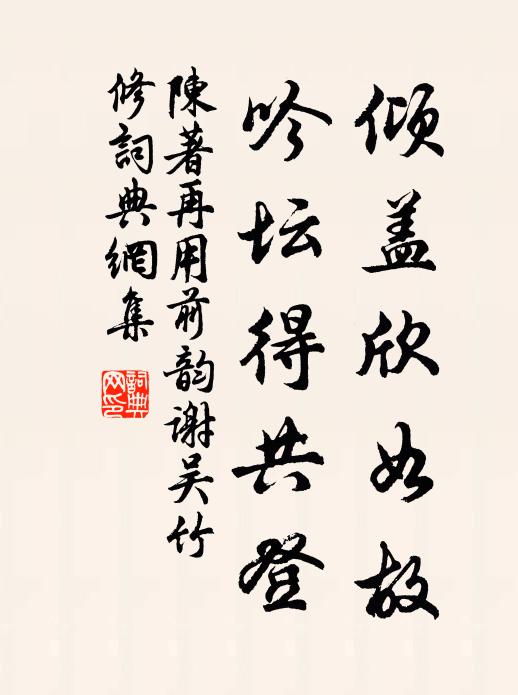 倾盖欣如故
吟坛得共登
陳著再用前韵谢吴竹
修詞典網集
詞典
网印